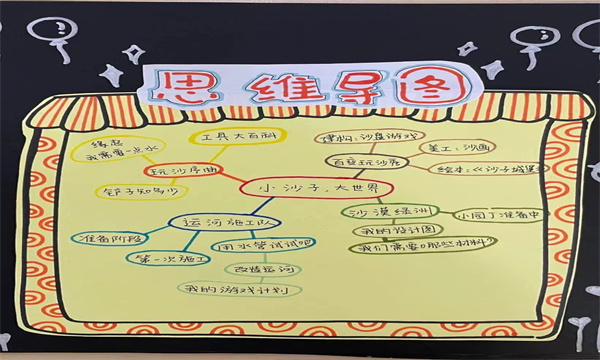 思维导图
缘起
我需要一点水
工具大百科
建构:沙盘游戏
美工:沙画
玩沙序曲
百变玩沙秀
绘本:《沙子城堡》
铲子知多少
小沙子,大世界
沙漠绿洲
小园丁准备中
运河施工队
我的设计图
准备阶段
用水管试试吧
我们需要哪些材料?
第一次施工
改造运河
我的游戏计划